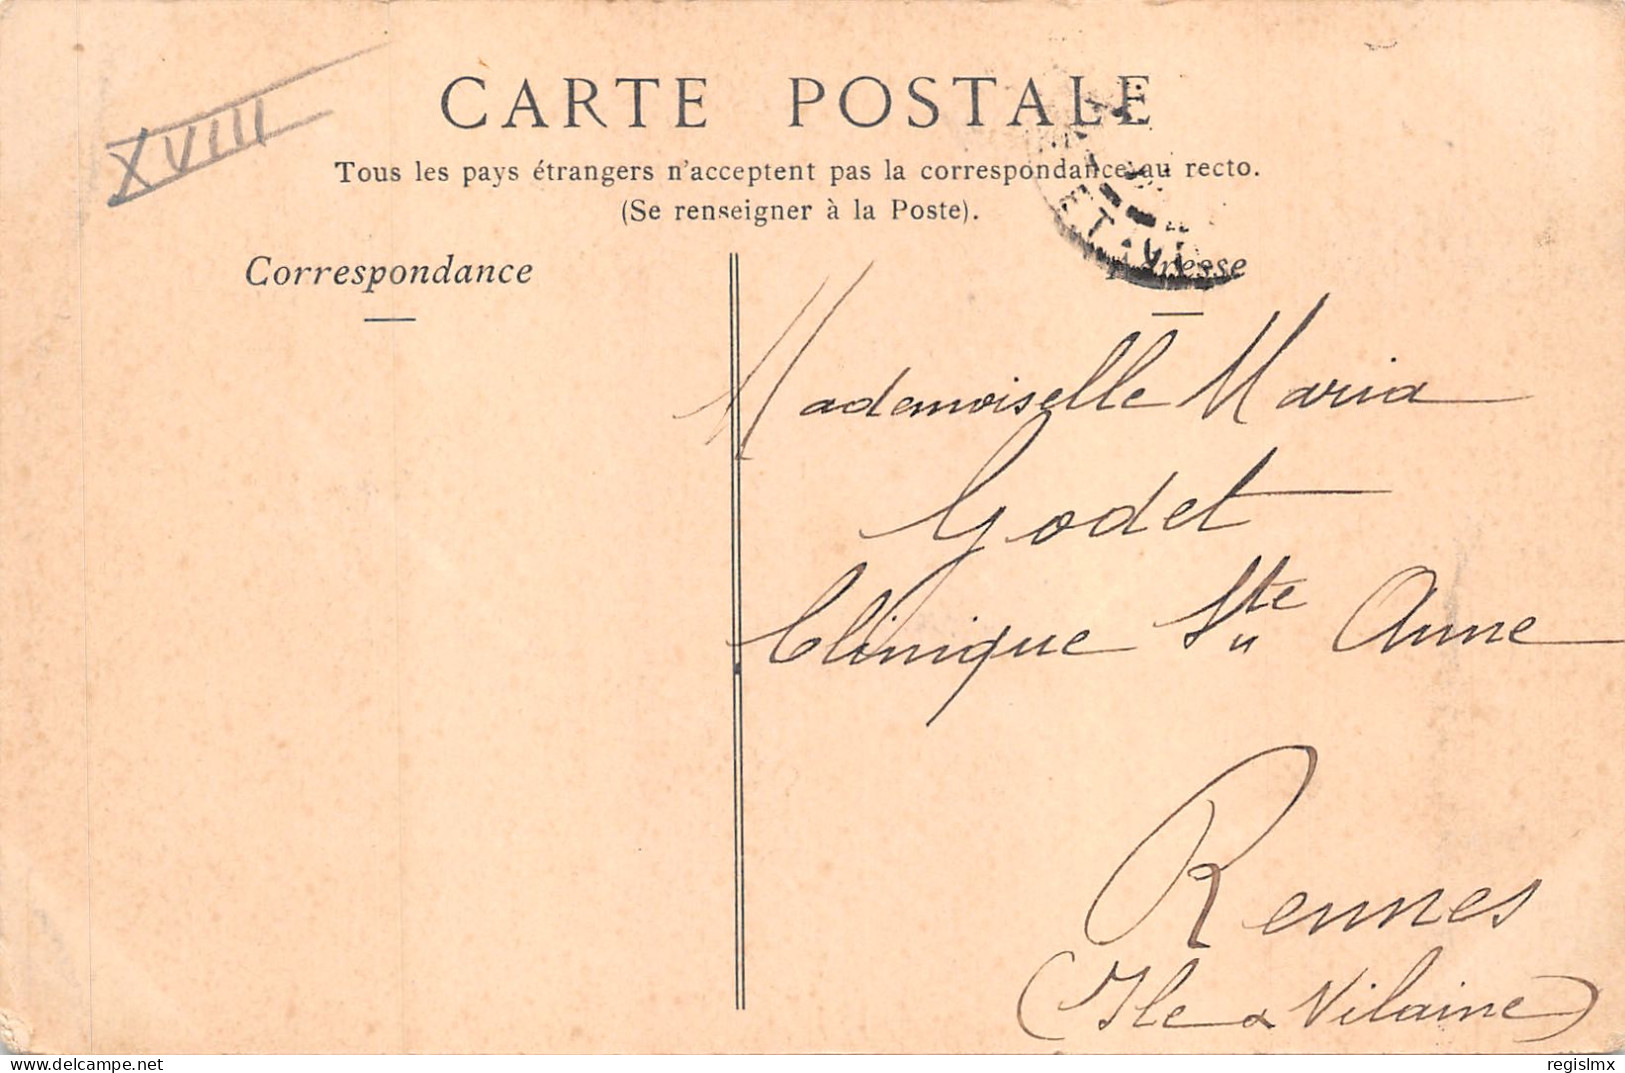 XVIII
CARTE POSTALE
Tous les pays étrangers n'acceptent pas la correspondance au recto.
(Se renseigner à la Poste).
Correspondance
Adresse
Mademoiselle Maria
Godet
Clinique Ste Anne
Rennes
(Ile & Vilaine)
delcampe.net
regislmx